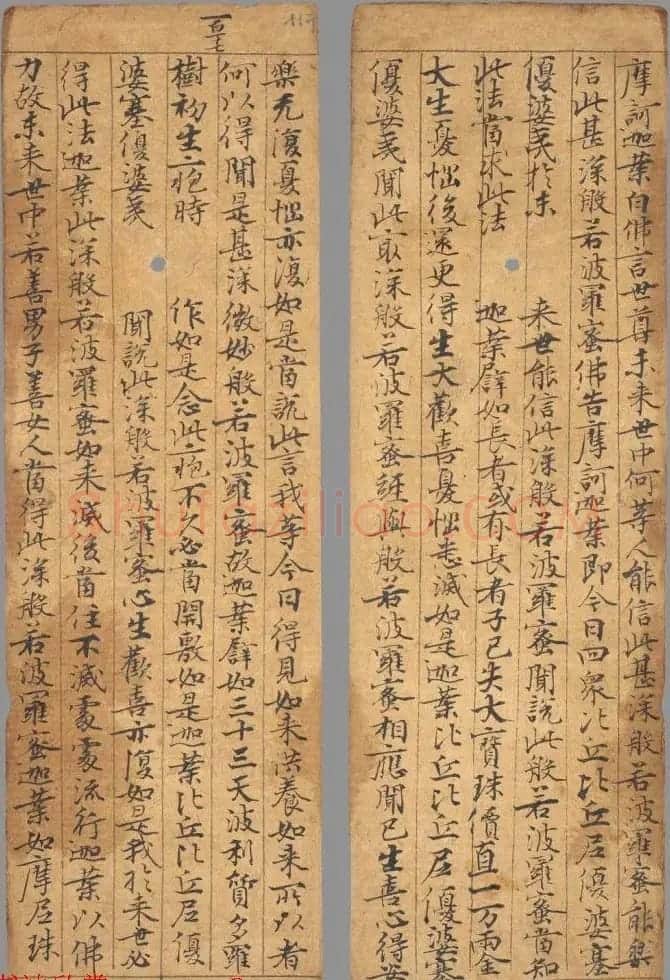 摩訶迦葉白佛言世尊未來世中何等人能信此甚深般若波羅蜜能樂
信此甚深般若波羅蜜佛告摩訶迦葉即今日四衆比丘比丘尼優婆塞
優婆夷於未 來世能信此深般若波羅蜜聞說此般若波羅蜜當知
此法當求此法 迦葉譬如長者或有長者子已失大寶珠價直一万兩金
大生憂惱後還更得生大歡喜憂惱悉滅如是迦葉比丘比丘尼優婆
優婆夷聞此最深般若波羅蜜經與般若波羅蜜相應聞已生喜心得
樂无復憂惱亦復如是當說此言我等今日得見如來供養如來所以者
何以得聞是甚深微妙般若波羅蜜故迦葉譬如三十三天波利質多羅
樹初生皰時 作如是念此皰不久必當開敷如是迦葉比丘比丘尼優
婆塞優婆夷 聞說此深般若波羅蜜心生歡喜亦復如是我於來世必
得此法迦葉此深般若波羅蜜如來滅後當住不滅處處流行迦葉以佛
力故未來世中若善男子善女人當得此深般若波羅蜜迦葉如摩尼珠